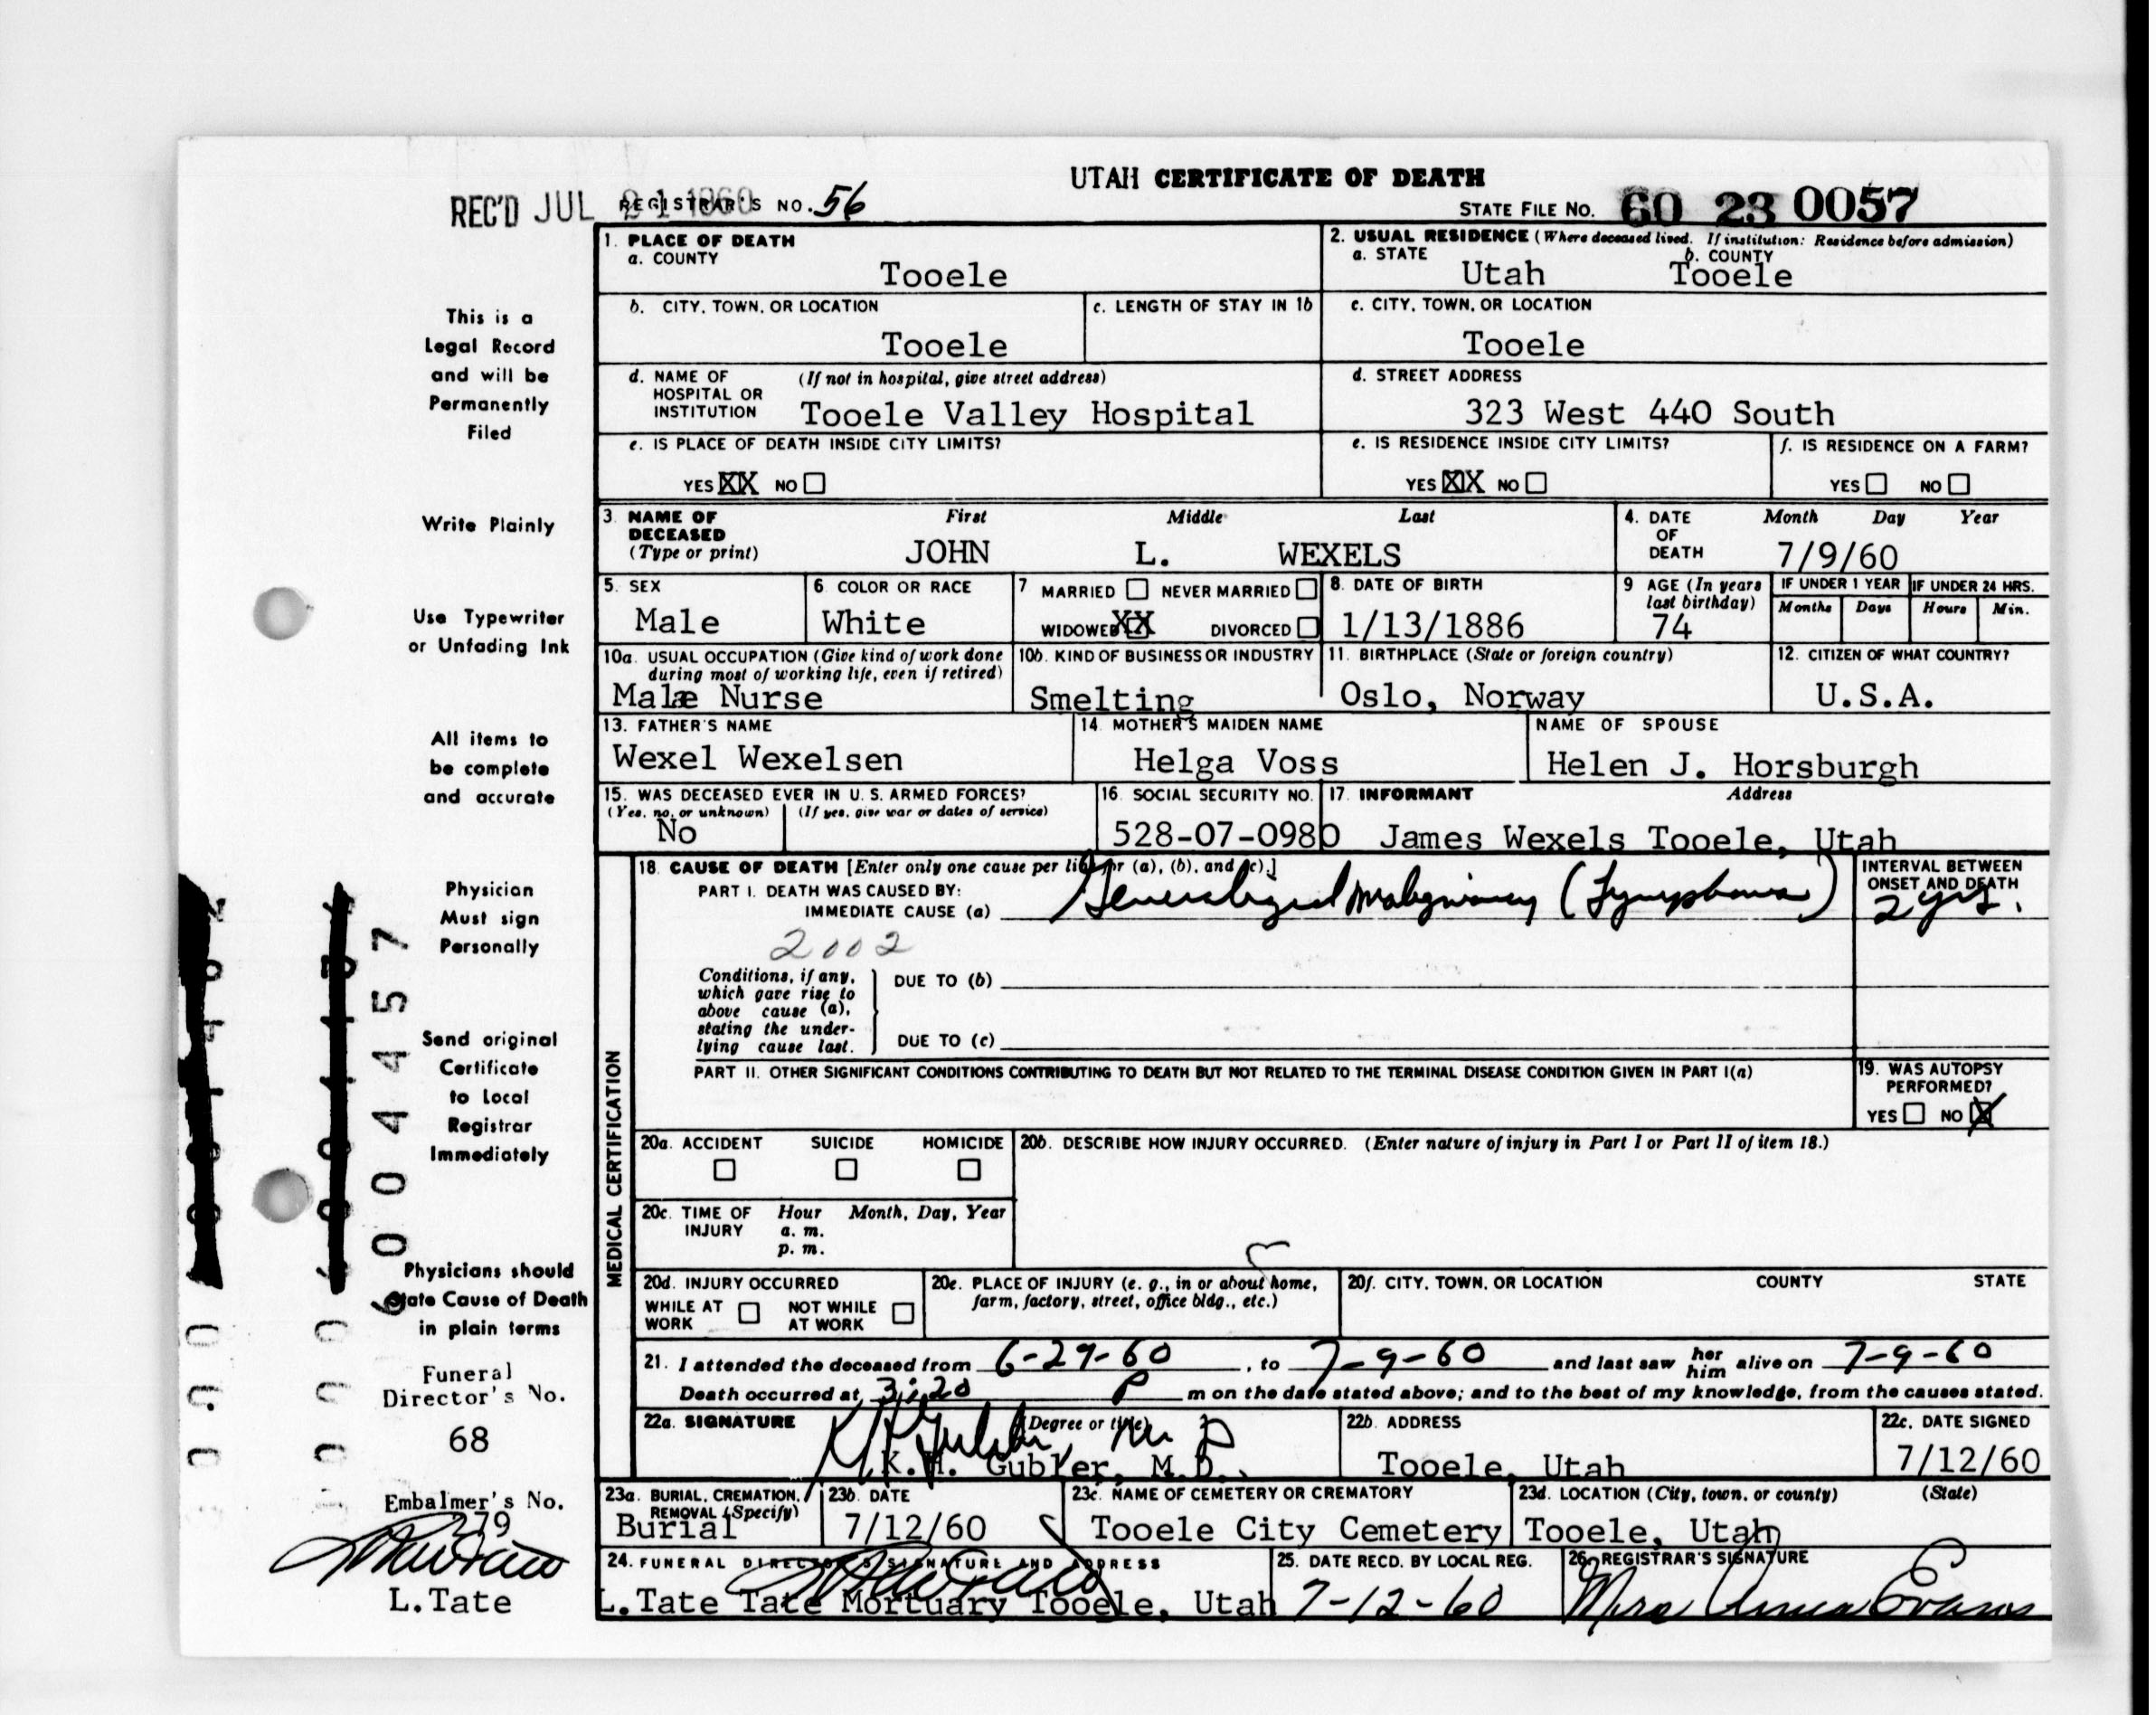 UTAH CERTIFICATE OF DEATH
REC'D JUL 21 1960 REGISTRAR'S NO. 56
STATE FILE NO. 60 23 0057
1. PLACE OF DEATH
a. COUNTY
Tooele
2. USUAL RESIDENCE (Where deceased lived. If institution: Residence before admission)
a. STATE b. COUNTY
Utah Tooele
b. CITY, TOWN, OR LOCATION
Tooele
c. LENGTH OF STAY IN 1b
c. CITY, TOWN, OR LOCATION
Tooele
d. NAME OF (If not in hospital, give street address)
HOSPITAL OR
INSTITUTION Tooele Valley Hospital
d. STREET ADDRESS
323 West 440 South
e. IS PLACE OF DEATH INSIDE CITY LIMITS?
YES XX NO
e. IS RESIDENCE INSIDE CITY LIMITS?
YES XX NO
f. IS RESIDENCE ON A FARM?
YES NO
3. NAME OF First Middle Last
DECEASED
(Type or print) JOHN L. WEXELS
4. DATE Month Day Year
OF
DEATH 7/9/60
5. SEX
Male
6. COLOR OR RACE
White
7 MARRIED NEVER MARRIED
WIDOWED XX DIVORCED
8. DATE OF BIRTH
1/13/1886
9 AGE (In years
last birthday)
74
IF UNDER 1 YEAR IF UNDER 24 HRS.
Months Days Hours Min.
10a. USUAL OCCUPATION (Give kind of work done
during most of working life, even if retired)
Male Nurse
10b. KIND OF BUSINESS OR INDUSTRY
Smelting
11. BIRTHPLACE (State or foreign country)
Oslo, Norway
12. CITIZEN OF WHAT COUNTRY?
U.S.A.
13. FATHER'S NAME
Wexel Wexelsen
14. MOTHER'S MAIDEN NAME
Helga Voss
NAME OF SPOUSE
Helen J. Horsburgh
15. WAS DECEASED EVER IN U. S. ARMED FORCES?
(Yes, no, or unknown) (If yes, give war or dates of service)
No
16. SOCIAL SECURITY NO.
528-07-0980
17. INFORMANT Address
James Wexels Tooele, Utah
MEDICAL CERTIFICATION
18. CAUSE OF DEATH [Enter only one cause per line for (a), (b), and (c).]
PART I. DEATH WAS CAUSED BY:
IMMEDIATE CAUSE (a) Generalized Malignancy (Lymphoma)
INTERVAL BETWEEN
ONSET AND DEATH
2 yrs.
2002
Conditions, if any,
which gave rise to
above cause (a),
stating the under-
lying cause last.
DUE TO (b)
DUE TO (c)
PART II. OTHER SIGNIFICANT CONDITIONS CONTRIBUTING TO DEATH BUT NOT RELATED TO THE TERMINAL DISEASE CONDITION GIVEN IN PART I(a)
19. WAS AUTOPSY
PERFORMED?
YES NO X
20a. ACCIDENT SUICIDE HOMICIDE
20b. DESCRIBE HOW INJURY OCCURRED. (Enter nature of injury in Part I or Part II of item 18.)
20c. TIME OF Hour Month, Day, Year
INJURY a. m.
p. m.
20d. INJURY OCCURRED
WHILE AT NOT WHILE
WORK AT WORK
20e. PLACE OF INJURY (e. g., in or about home,
farm, factory, street, office bldg., etc.)
20f. CITY, TOWN, OR LOCATION COUNTY STATE
21. I attended the deceased from 6-29-60, to 7-9-60 and last saw her him alive on 7-9-60
Death occurred at 3:20 P m on the date stated above; and to the best of my knowledge, from the causes stated.
22a. SIGNATURE (Degree or title)
K H Gubler, M D
K.H. Gubler, M.D.
22b. ADDRESS
Tooele, Utah
22c. DATE SIGNED
7/12/60
23a. BURIAL, CREMATION,
REMOVAL (Specify)
Burial
23b. DATE
7/12/60
23c. NAME OF CEMETERY OR CREMATORY
Tooele City Cemetery
23d. LOCATION (City, town, or county) (State)
Tooele, Utah
24. FUNERAL DIRECTOR'S SIGNATURE AND ADDRESS
L.Tate Tate Mortuary Tooele, Utah
25. DATE RECD. BY LOCAL REG.
7-12-60
26. REGISTRAR'S SIGNATURE
Mrs Anna Evans
This is a
Legal Record
and will be
Permanently
Filed
Write Plainly
Use Typewriter
or Unfading Ink
All items to
be complete
and accurate
Physician
Must sign
Personally
Send original
Certificate
to Local
Registrar
Immediately
Physicians should
State Cause of Death
in plain terms
Funeral
Director's No.
68
Embalmer's No.
279
L.Tate
6004457